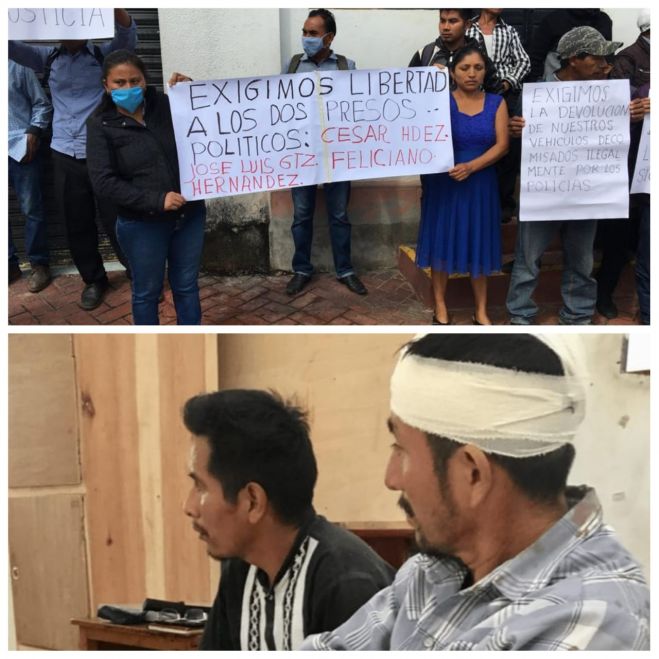 JUSTICIA
EXIGIMOS LIBERTAD
A LOS DOS PRESOS..
POLITICOS: CESAR HDEZ.
JOSE LUIS GTZ. FELICIANO.
HERNÁNDEZ.
EXIGIMOS
LA DEVOLUCION
DE NUESTROS
VEHICULOS DECO
MISADOS ILEGAL
MENTE POR LOS
POLICIAS.